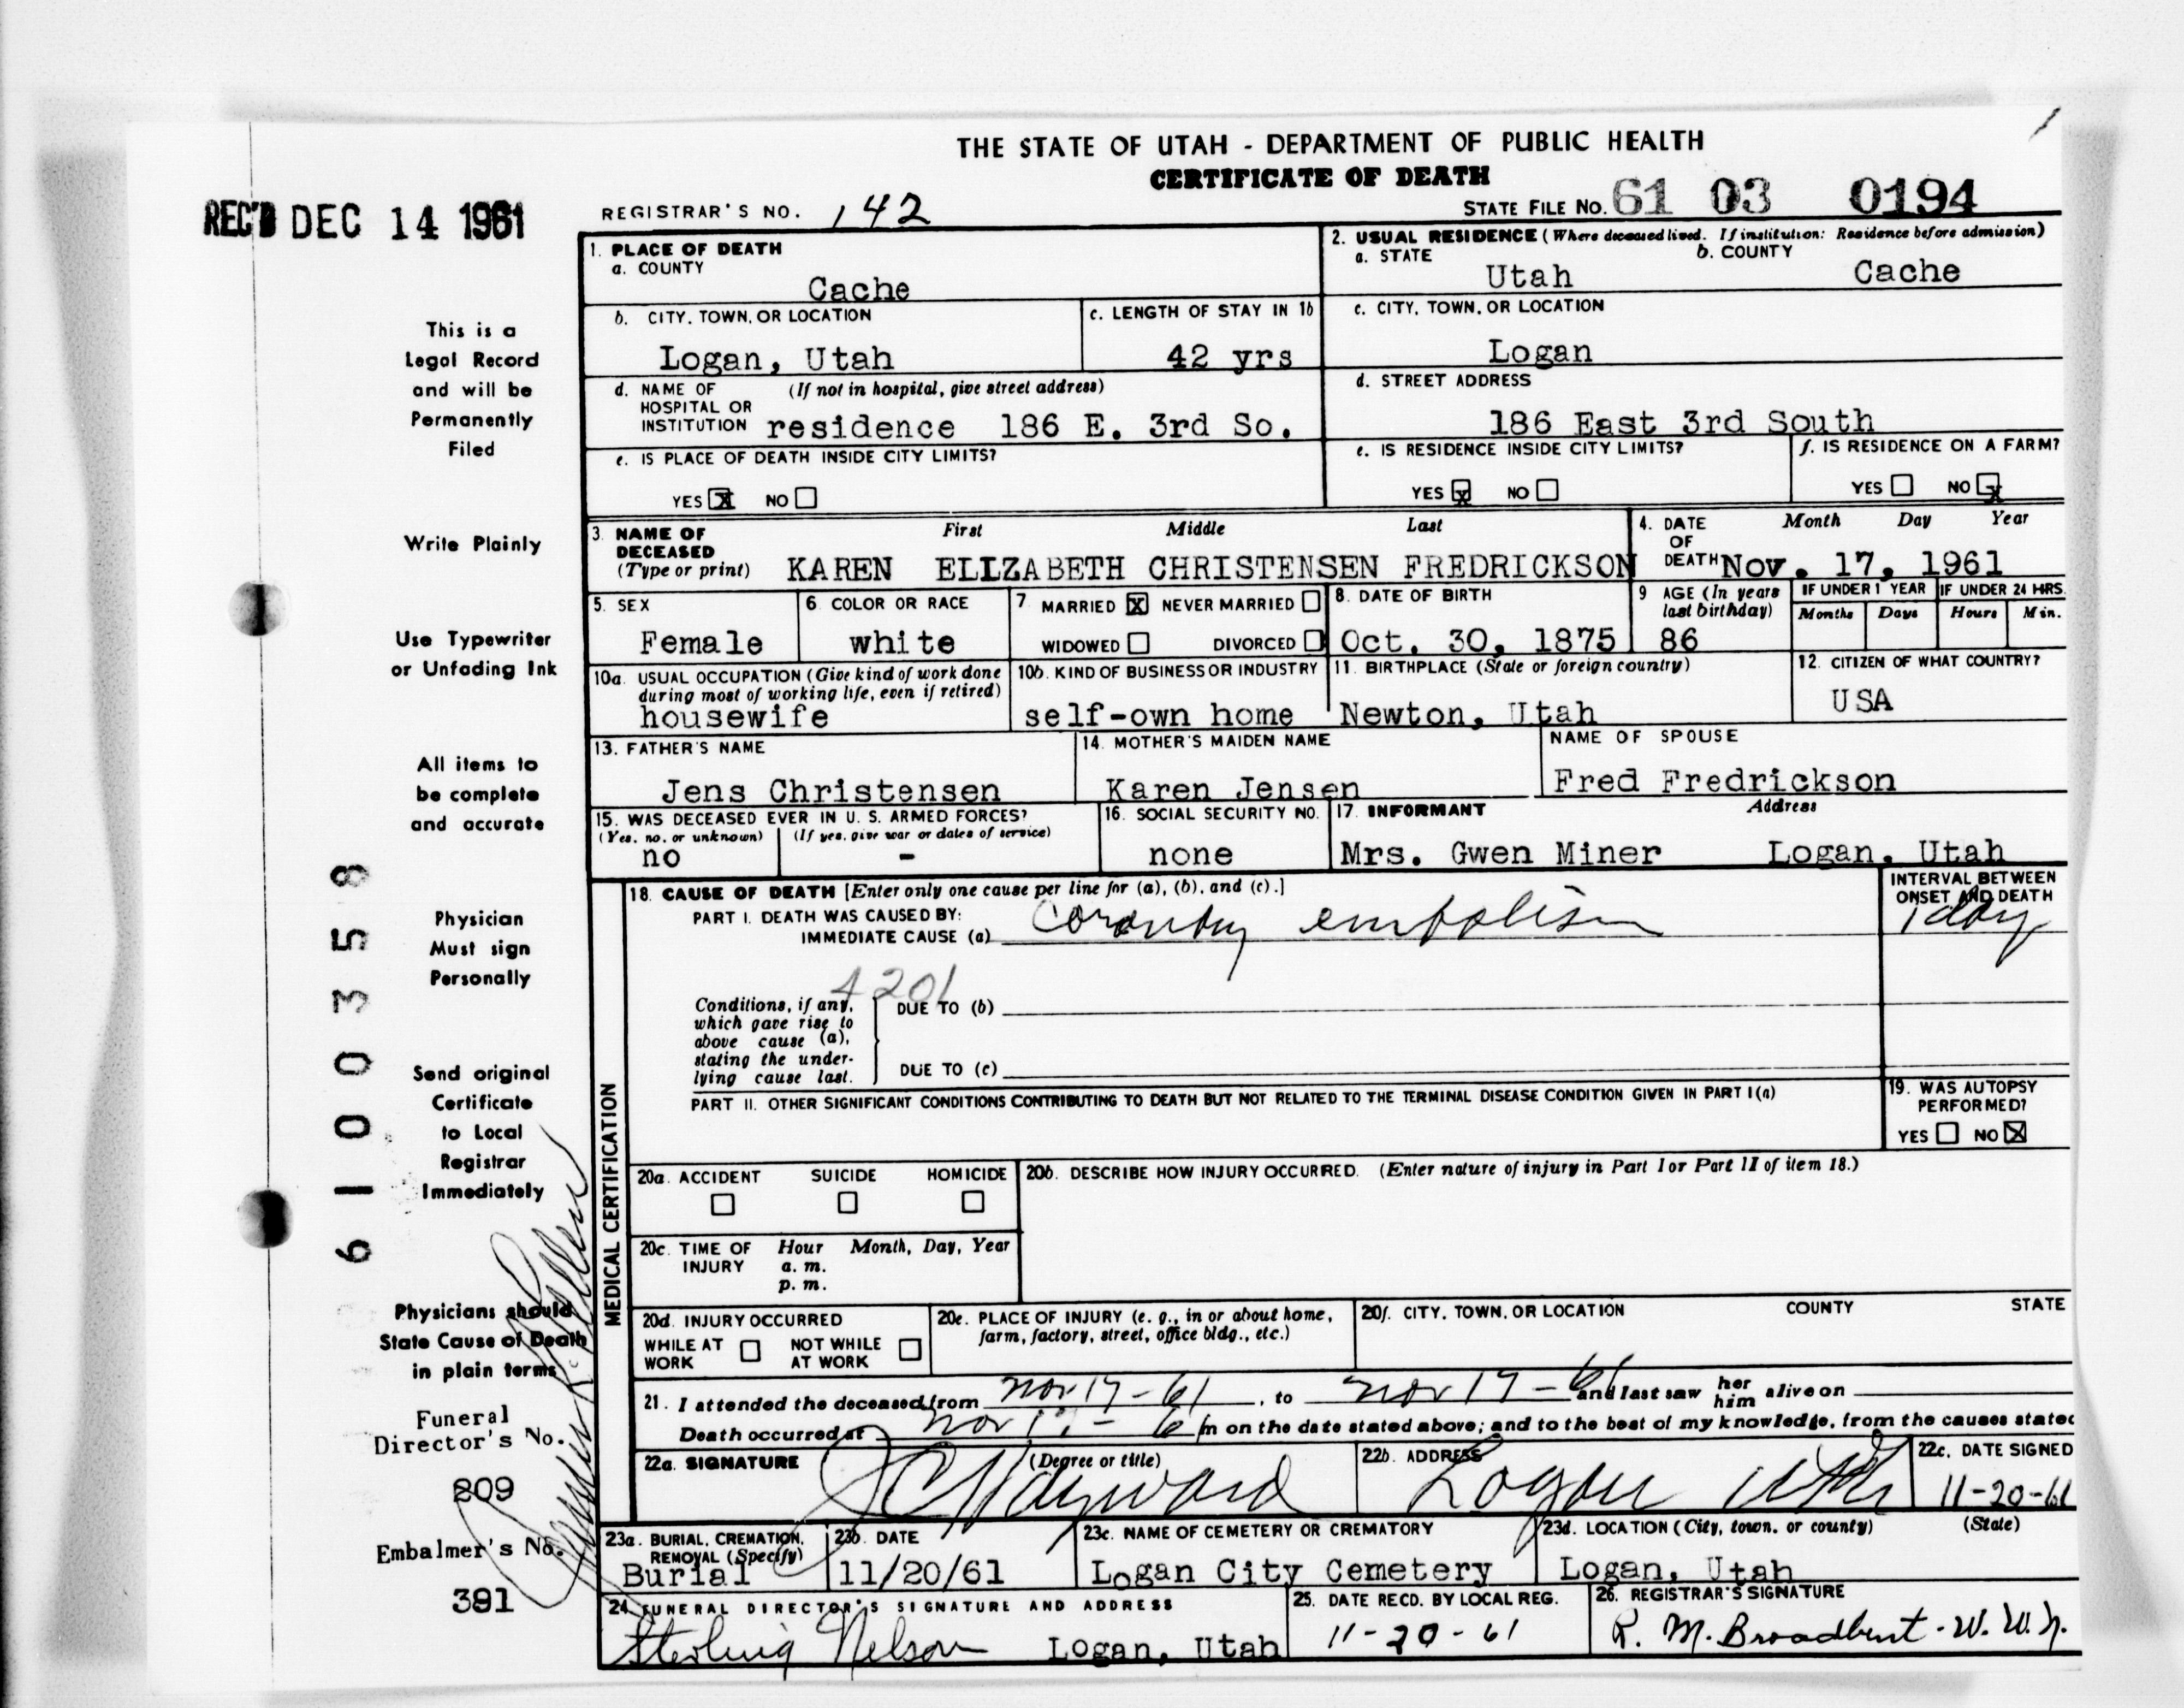 THE STATE OF UTAH - DEPARTMENT OF PUBLIC HEALTH
CERTIFICATE OF DEATH
REC'D DEC 14 1961
REGISTRAR'S NO. 142
STATE FILE NO. 61 03 0194
1. PLACE OF DEATH
a. COUNTY
Cache
2. USUAL RESIDENCE (Where deceased lived. If institution: Residence before admission)
a. STATE b. COUNTY
Utah Cache
b. CITY, TOWN, OR LOCATION
Logan, Utah
c. LENGTH OF STAY IN 1b
42 yrs
c. CITY, TOWN, OR LOCATION
Logan
d. NAME OF (If not in hospital, give street address)
HOSPITAL OR
INSTITUTION residence 186 E. 3rd So.
d. STREET ADDRESS
186 East 3rd South
e. IS PLACE OF DEATH INSIDE CITY LIMITS?
YES X NO
e. IS RESIDENCE INSIDE CITY LIMITS?
YES X NO
f. IS RESIDENCE ON A FARM?
YES NO X
3. NAME OF First Middle Last
DECEASED
(Type or print) KAREN ELIZABETH CHRISTENSEN FREDRICKSON
4. DATE Month Day Year
OF
DEATH Nov. 17, 1961
5. SEX
Female
6. COLOR OR RACE
white
7. MARRIED X NEVER MARRIED
WIDOWED DIVORCED
8. DATE OF BIRTH
Oct. 30, 1875
9 AGE (In years
last birthday)
86
IF UNDER 1 YEAR IF UNDER 24 HRS.
Months Days Hours Min.
10a. USUAL OCCUPATION (Give kind of work done
during most of working life, even if retired)
housewife
10b. KIND OF BUSINESS OR INDUSTRY
self-own home
11. BIRTHPLACE (State or foreign country)
Newton, Utah
12. CITIZEN OF WHAT COUNTRY?
USA
13. FATHER'S NAME
Jens Christensen
14. MOTHER'S MAIDEN NAME
Karen Jensen
NAME OF SPOUSE
Fred Fredrickson
15. WAS DECEASED EVER IN U. S. ARMED FORCES?
(Yes, no, or unknown) (If yes, give war or dates of service)
no -
16. SOCIAL SECURITY NO.
none
17. INFORMANT Address
Mrs. Gwen Miner Logan, Utah
MEDICAL CERTIFICATION
18. CAUSE OF DEATH [Enter only one cause per line for (a), (b), and (c).]
PART I. DEATH WAS CAUSED BY:
IMMEDIATE CAUSE (a) Coronary embolism
INTERVAL BETWEEN
ONSET AND DEATH
1 day
4201
Conditions, if any,
which gave rise to
above cause (a),
stating the under-
lying cause last.
DUE TO (b)
DUE TO (c)
PART II. OTHER SIGNIFICANT CONDITIONS CONTRIBUTING TO DEATH BUT NOT RELATED TO THE TERMINAL DISEASE CONDITION GIVEN IN PART I(a)
19. WAS AUTOPSY
PERFORMED?
YES NO X
20a. ACCIDENT SUICIDE HOMICIDE
20b. DESCRIBE HOW INJURY OCCURRED. (Enter nature of injury in Part I or Part II of item 18.)
20c. TIME OF Hour Month, Day, Year
INJURY a. m.
p. m.
20d. INJURY OCCURRED
WHILE AT NOT WHILE
WORK AT WORK
20e. PLACE OF INJURY (e. g., in or about home,
farm, factory, street, office bldg., etc.)
20f. CITY, TOWN, OR LOCATION COUNTY STATE
21. I attended the deceased from Nov 17-61, to Nov 17-61 and last saw her him alive on
Death occurred at Nov 17-61 m on the date stated above; and to the best of my knowledge, from the causes stated
22a. SIGNATURE (Degree or title)
J C Hayward
22b. ADDRESS
Logan Utah
22c. DATE SIGNED
11-20-61
23a. BURIAL, CREMATION,
REMOVAL (Specify)
Burial
23b. DATE
11/20/61
23c. NAME OF CEMETERY OR CREMATORY
Logan City Cemetery
23d. LOCATION (City, town, or county) (State)
Logan, Utah
24. FUNERAL DIRECTOR'S SIGNATURE AND ADDRESS
Sterling Nelson Logan, Utah
25. DATE RECD. BY LOCAL REG.
11-20-61
26. REGISTRAR'S SIGNATURE
R. M. Broadbent - W. W. N.
This is a
Legal Record
and will be
Permanently
Filed
Write Plainly
Use Typewriter
or Unfading Ink
All items to
be complete
and accurate
Physician
Must sign
Personally
Send original
Certificate
to Local
Registrar
Immediately
Physicians should
State Cause of Death
in plain terms
Funeral
Director's No.
209
Embalmer's No.
391
6100358